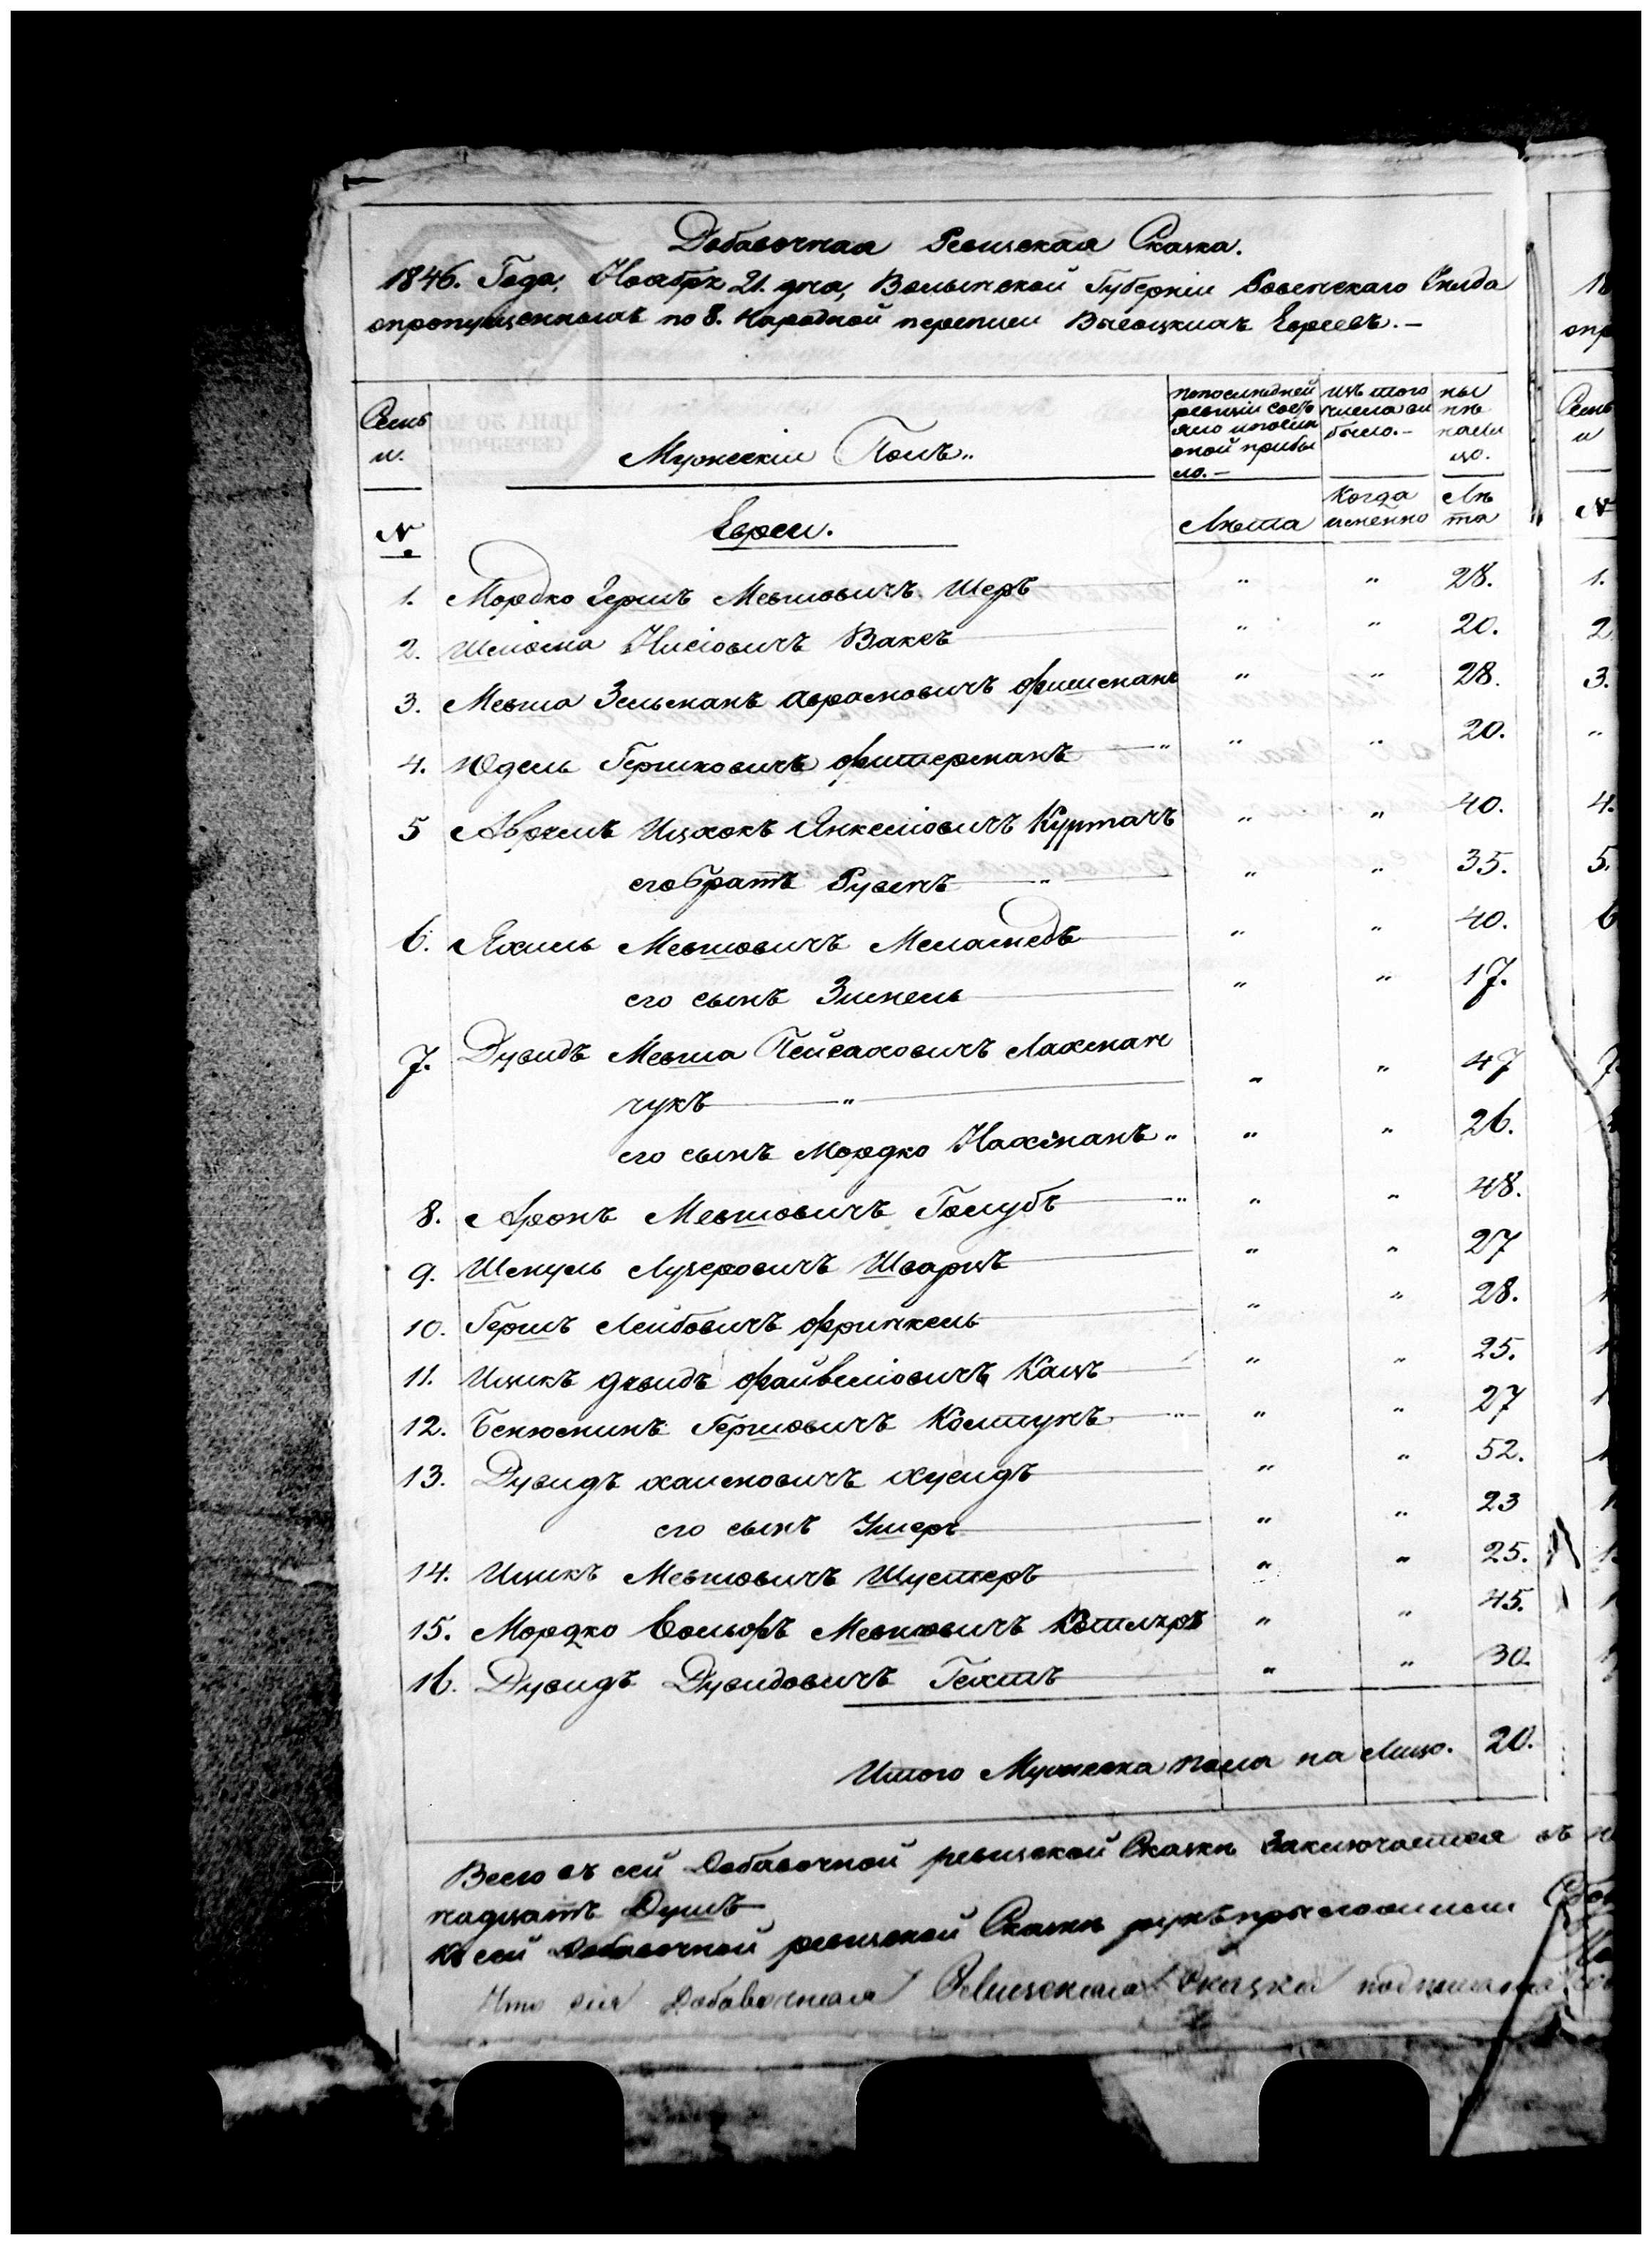 Добавочная Ревизская Сказка.
1846. Года, Ноября 21. дня, Волынской Губерніи Ровенскаго Уезда
опропущенныхъ по 8. народной переписи Высоцкихъ Евреевъ.—
Семь
и.
Мужескій Полъ..
попоследней
ревизіи состо
яло ипослѣ
оной прибы
ло.—
изъ того
числа вы
было.—
ны
нѣ
нали
цо.
№
Евреи.
Лѣта
Когда
именно
Лѣ
та
1. Мордко Гершъ Мевшовичъ Шеръ " " 28.
2. Шліома Нисіовичъ Ваксъ " " 20.
3. Мевша Зельманъ Аврамовичъ Фишманъ " " 28.
4. Юдель Гершковичъ Фитерманъ " " " 20.
5 Аврумъ Ицхокъ Янкеліовичъ Куртачъ " " 40.
его братъ Рувенъ " " " 35.
6. Яхиль Мевшовичъ Меламедъ " " 40.
его сынъ Зимель " " 17.
7. Дувидъ Мевша Пейсаховичъ Лахман
чукъ " " " 47
его сынъ Мордко Нахманъ " " " 26.
8. Аронъ Мевшовичъ Голубъ " " " 48.
9. Шмуль Лузеровичъ Шварцъ " " 27
10. Гершъ Лейбовичъ Фринкель " " 28.
11. Ицикъ Дувидъ Файвеліовичъ Кацъ " " 25.
12. Бенюминъ Гершовичъ Колтунъ " " " 27
13. Дувидъ Хаимовичъ Хусидъ " " 52.
его сынъ Ушеръ " " 23
14. Ицикъ Мевшовичъ Шустеръ " " 25.
15. Мордко Вольфъ Мевшовичъ " " 45.
16. Дувидъ Дувидовичъ Гехтъ " " 30.
Итого Мужеска пола на Лицо. 20.
Всего въ сей Добавочной ревизской Сказкѣ Заключается въ
надцать Душъ
Къ сей Добавочной ревизской Сказкѣ рукѣ приложили
Что сія Добавочная Ревизская Сказка подписана